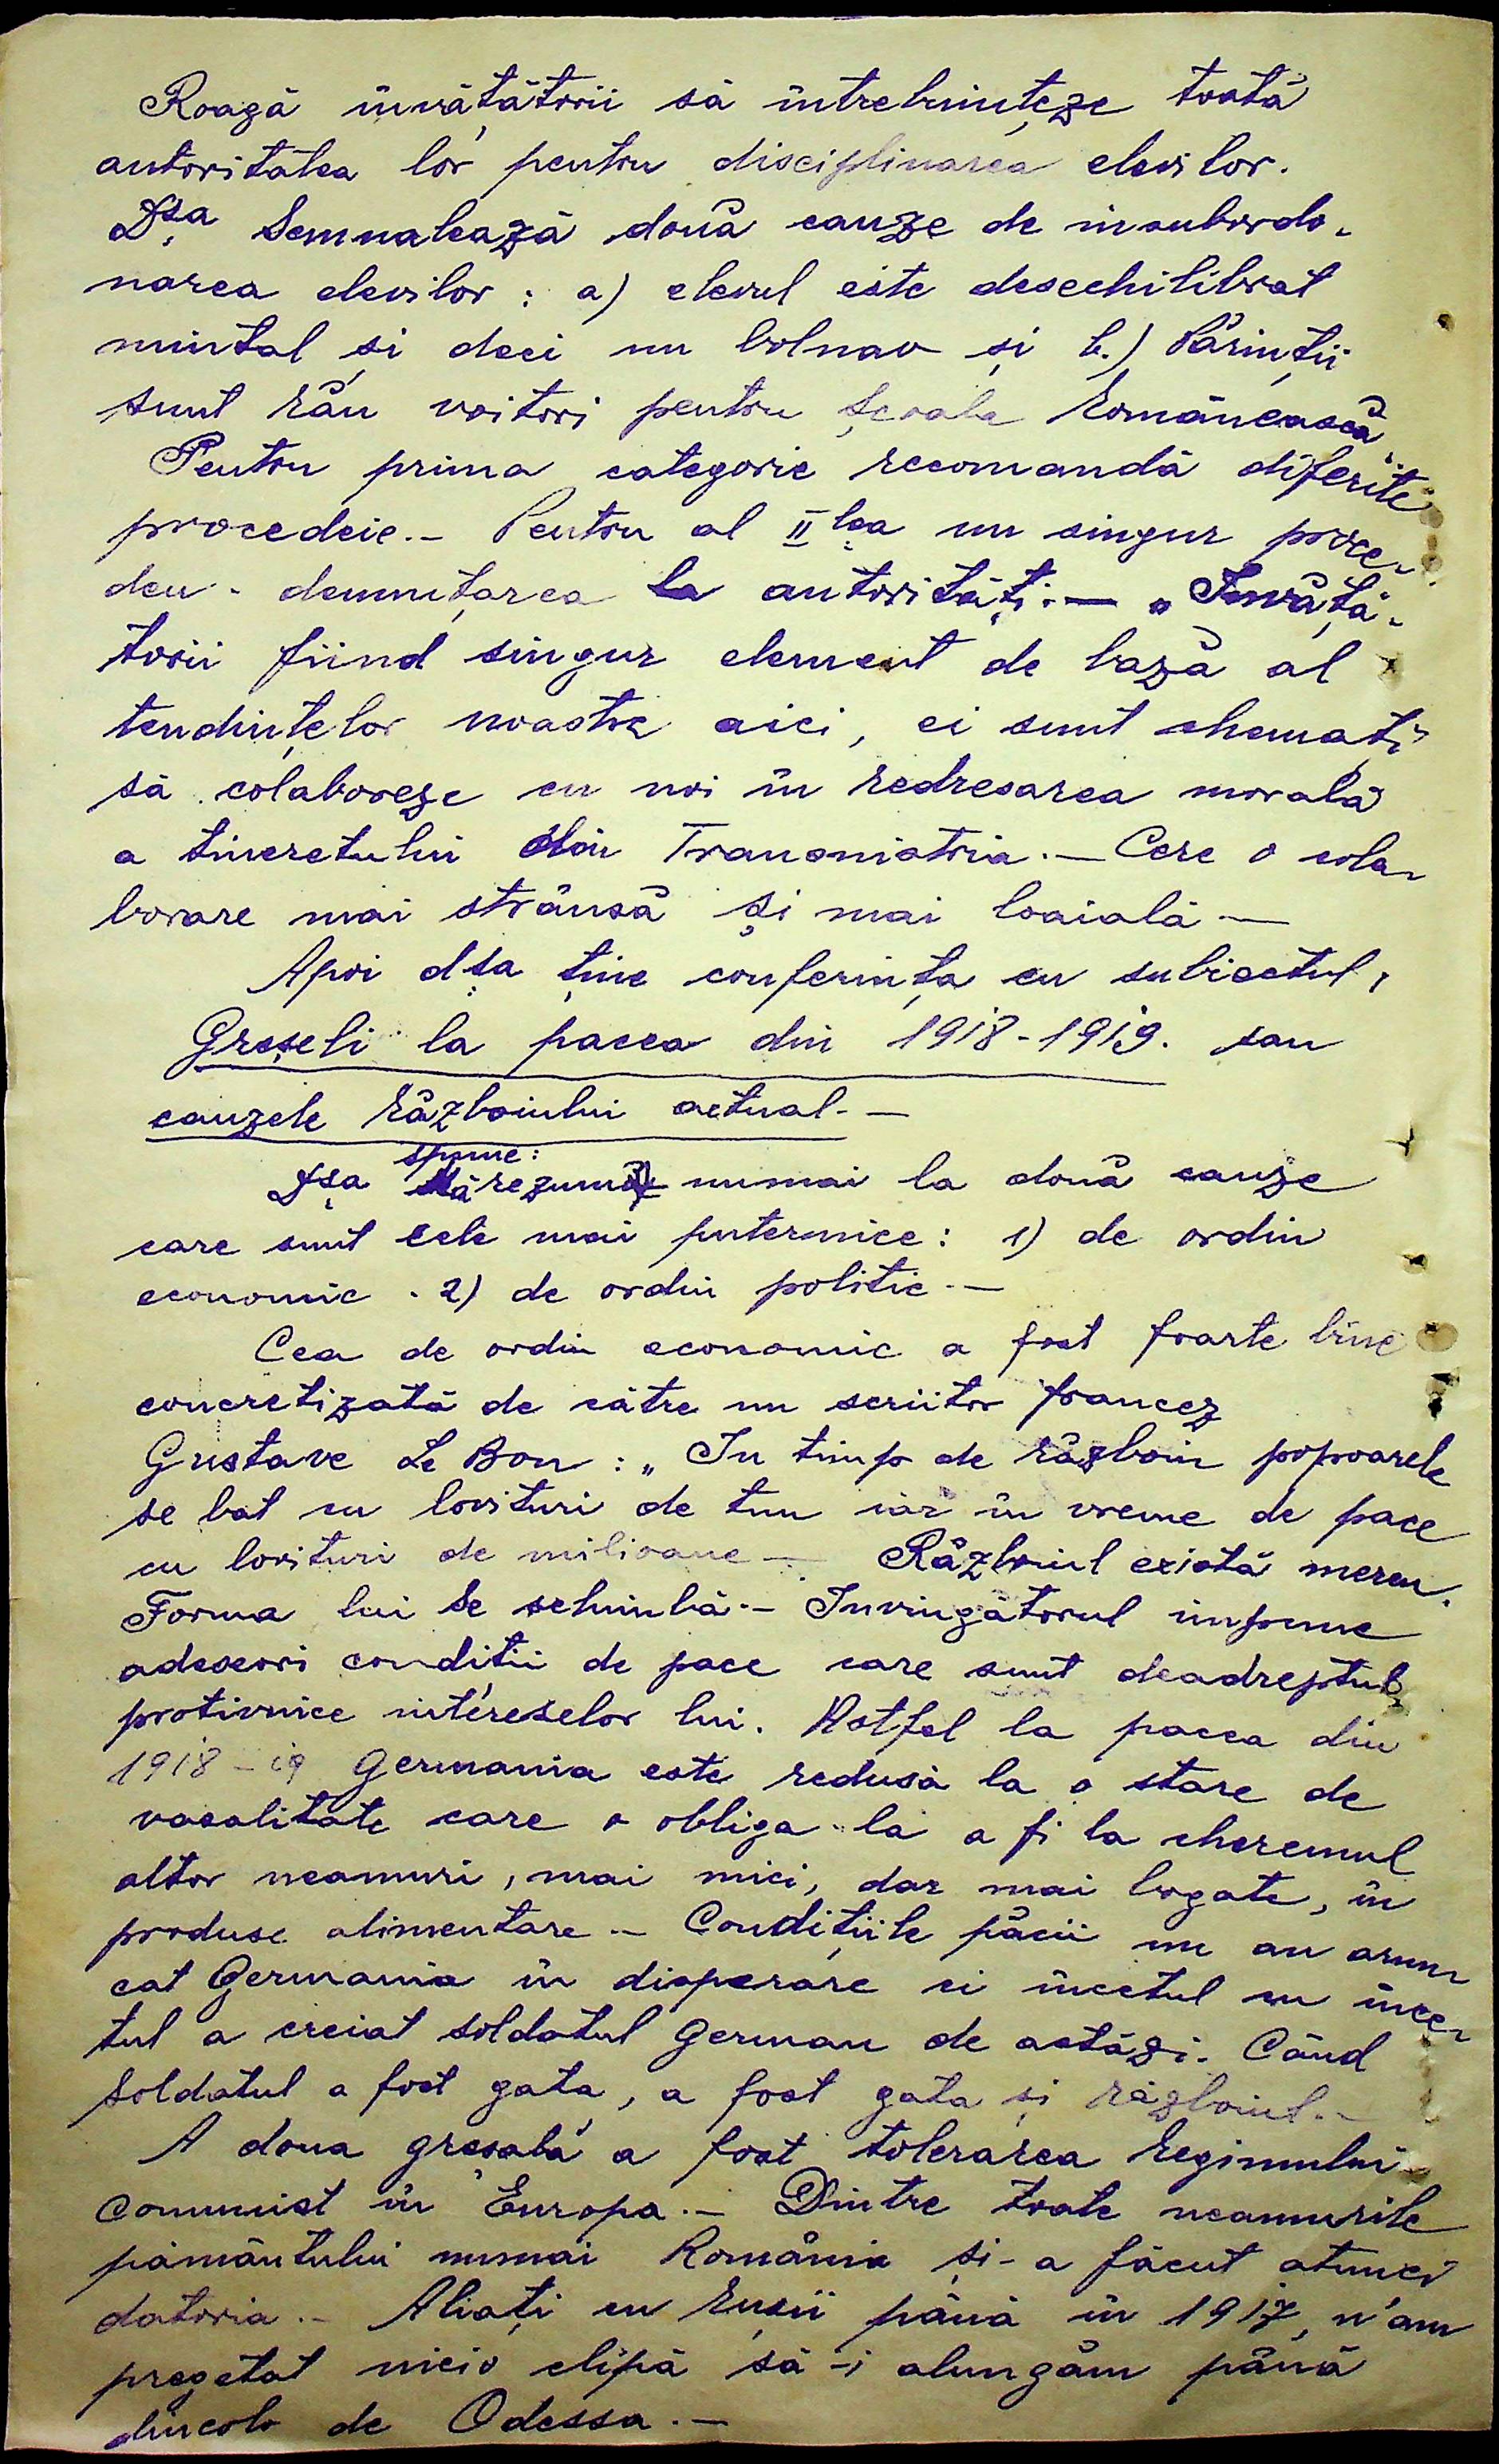 Roagă învățătorii să întrebuințeze toată
autoritatea lor pentru disciplinarea elevilor.
Dsa Semnalează două cauze de insubordo-
narea elevilor : a) elevul este desechilibrat
mintal și deci un bolnav și b.) Părinții
sunt rău voitori pentru școala Românească
Pentru prima categorie recomandă diferite
procedeie.- Pentru al II lea un singur proce-
deu - denunțarea la autorități. — „Învăță-
torii fiind singur element de bază al
tendințelor noastre aici, ei sunt chemați
să colaboreze cu noi în redresarea morală
a tineretului din Transnistria. — Cere o cola-
borare mai strânsă și mai loaială —
Apoi dșa ține conferința cu subiectul,
Greșeli la pacea din 1918-1919. sau
cauzele războiului actual. —
spune:
Dșa Mă rezumă numai la două cauze
care sunt cele mai puternice : 1) de ordin
economic . 2) de ordin politic. —
Cea de ordin economic a fost foarte bine
concretizată de către un scriitor francez
Gustave Le Bon : „ In timp de războiu popoarele
se bat cu lovituri de tun iar în vreme de pace
cu lovituri de milioane — Războiul există mereu.
Forma lui se schimbă.- Invingătorul impune
adeseori condiții de pace care sunt deadreptul
protivnice intereselor lui. Astfel la pacea din
1918 - 19 Germania este redusă la o stare de
vasalitate care o obliga la a fi la cheremul
altor neamuri, mai mici, dar mai bogate, în
produse alimentare - Condițiile păcii nu au arun-
cat Germania în disperare ci încetul cu înce-
tul a creiat soldatul German de astăzi. Când
soldatul a fost gata, a fost gata și războiul.-
A doua greșală a fost tolerarea regimului
comunist în Europa. - Dintre toate neamurile
pământului numai România și-a făcut atunci
datoria. - Aliați cu Rușii până în 1917, n'am
pregetat nicio clipă să-i alungăm până
dincolo de Odessa. —